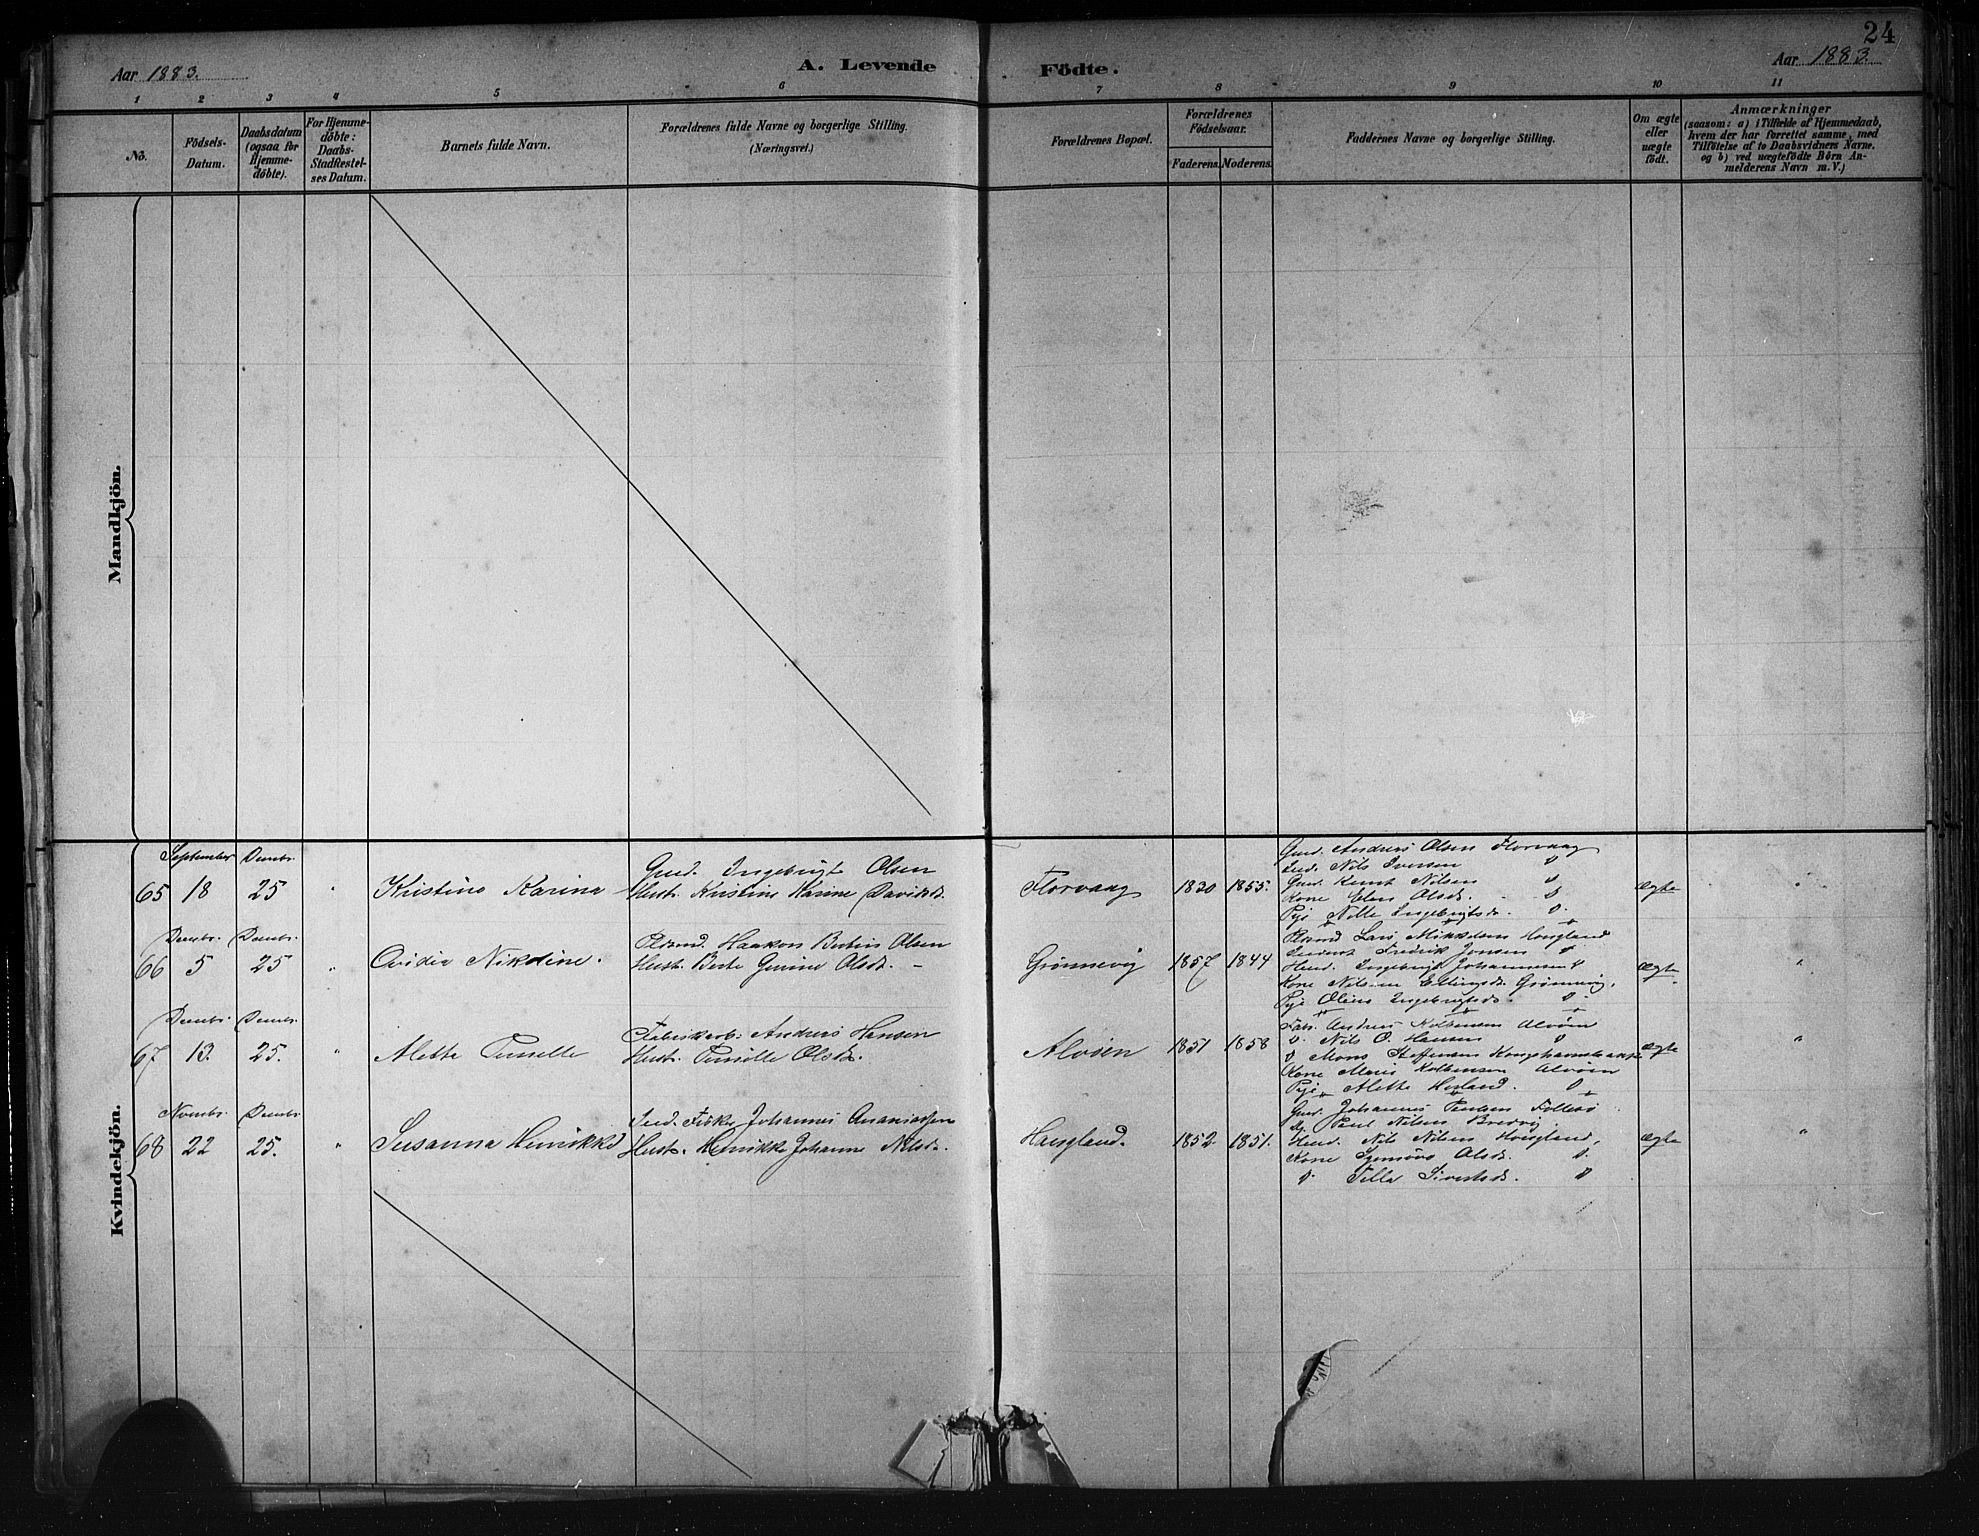 24
Aar 1883.
A. Levende Födte.
Aar 1883.
1 2 3 4 5 6 7 8 9 10 11
No.
Födsels-
Datum.
Daabsdatum
(ogsaa for
Hjemme-
döbte).
For Hjemme-
döbte:
Daabs-
Stadfæstel-
ses Datum.
Barnets fulde Navn.
Forældrenes fulde Navne og borgerlige Stilling.
(Næringsvei.)
Forældrenes Bopæl.
Forældrenes
Födselsaar.
Faderens. Moderens.
Faddernes Navne og borgerlige Stilling.
Om ægte
eller
uægte
födt.
Anmærkninger
(saasom: a) i Tilfælde af Hjemmedaab,
hvem der har forrettet samme, med
Tilföielse af to Daabsvidners Navne.
og b) ved uægtefödte Börn An-
melderens Navn m.V.)
Mandkjön.
Kvindekjön.
September Decmbr.
65 18 25 " Kristine Karina
Gmd. Ingebrigt Olsen
Hust. Kristine Karine Davidsd.
Florvaag 1830 1855.
Gmd. Andreas Olsen Florvaag
Nils Iversen
Gmd. Knut Nilsen
Kone Elen Olsd.
Pige Nille Ingebrigtsd.
Ægte "
Decmbr. Decmbr.
66 5 25 " Ovidia Nikoline.
Haakon Olsen
Hust. Berte Olsd.
Grønnevig 1857 1844
Lars Mikkelsen Hougland
Fredrik Jonsen
Ingebrigt Johannesen
Kone Ellingsd. Grønnevig,
Pige Oline Ingebrigtsd.
Ægte "
Decmbr. Decmbr.
67 13. 25. " Alette Pernille
Fabrikarb. Andreas Hansen
Hust. Pernille Olsd.
Alvøen 1851 1858
Fab. Andreas Alvøen
Nils O. Hansen
Mons Steffensen
Kone Alvøen
Pige Alette
Ægte "
Novmbr. Decmbr.
68 22 25. " Susanna Henrikke
Ind. Fisker Johannes Ananiassen
Hust. Henrikke Johanne Nilsd.
Haugland. 1852 1851.
Gmd. Johannes Follesø
Paul Nilsen Bredvig
Nils Nilsen Hougland,
Kone Olsd.
Sivertsd.
Ægte "